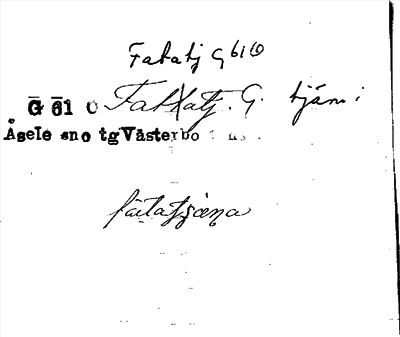 Fatatj G 61
G 61 C Fattatj. G. tjärn i
Åsele sno tg Västerbo
fàtatjœna